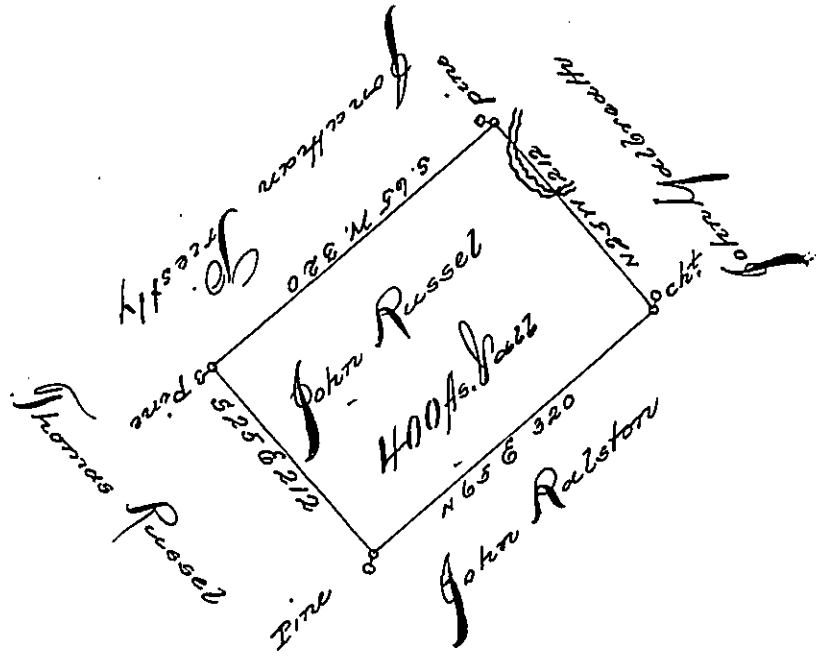 Jonathan
Priestly
pine
John Galbreath
S. 65 W. 320
N25W 212
John Russel
400 As. & all
cht.
3 Pine
S25E 212
N65E 320
Thomas Russel
Pine
John Ralston